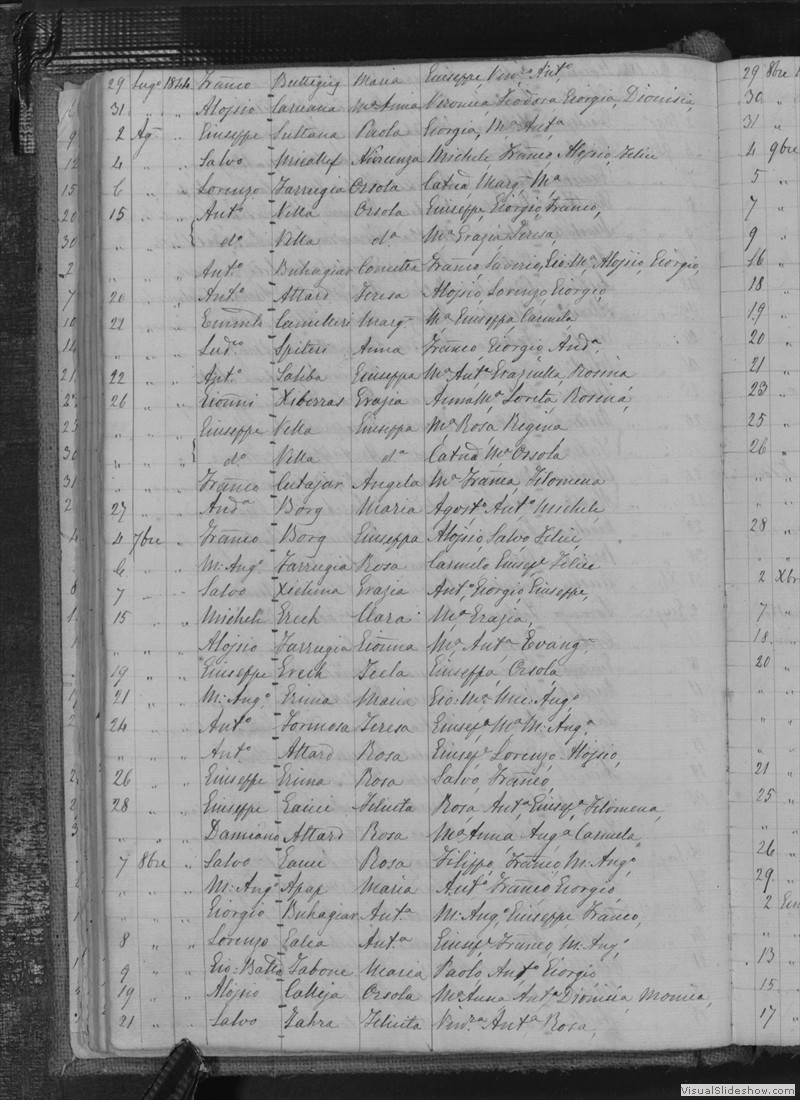 29 Lug.o 1844 Franco Buttigieg Maria Giuseppe Vin.a Ant.o
31 " " Aloisio Caruana M.a Anna Veronica, Teodora Giorgia, Dionisia,
2 Ag. " Giuseppe Sultana Paola Giorgia, M.a Ant.a
4 " " Salvo Micallef Fiorenza Michele Franco Aloisio, Felice
6 " " Lorenzo Farrugia Orsola Catna Marg. M.a
15 " " Ant.o Vella Orsola Giuseppe, Giorgio, Franco,
" " " d.o Vella d.a M.a Grazia Teresa,
" " " Ant.o Buhagiar Concetta Franco, Saverio, Gio. M.a Aloisio, Giorgio,
20 " " Ant.o Attard Teresa Aloisio, Lorenzo, Giorgio,
21 " " Emmle Camilleri Marg. M.a Giuseppa Carmela
" " " Lud.co Spiteri Anna Franco, Giorgio And.a
22 " " Ant.o Saliba Giuseppa M.a Ant.a Graziulla, Rosina
26 " " Gionni Xiberras Grazia Anna M.a Loreta Rosina,
" " " Giuseppe Vella Giuseppa M.a Rosa Regina
" " " d.o Vella d.a Catna M.a Orsola
" " " Franco Cutajar Angela M.a Franca, Filomena
27 " " And.a Borg Maria Agost.o Ant.o Michele,
4 7bre " Franco Borg Giuseppa Aloisio, Salvo Felice,
6 " " M: Ang.o Farrugia Rosa Carmelo Giuse.e Felice
7 " " Salvo Xichma Grazia Ant.o, Giorgio, Giuseppe,
15 " " Michele Grech Clara M.a Grazia,
" " " Aloisio Farrugia Gionna M.a Ant.a Evang.
19 " " Giuseppe Grech Tecla Giuseppa, Orsola,
21 " " M: Ang.o Grima Maria Gio: M.a Mic: Ang.o
24 " " Ant.o Formosa Teresa Giuse.e M.a M: Ang.o
" " " Ant.o Attard Rosa Giuse.e Lorenzo Aloisio,
26 " " Giuseppe Grima Rosa Salvo, Franco,
28 " " Giuseppe Gauci Felicita Rosa Ant.a, Giuse.a, Filomena,
" " " Damiano Attard Rosa M.a Anna Ang.a Carmela
7 8bre " Salvo Gauci Rosa Filippo, Franco M: Ang.o
" " " M: Ang.o Apap Maria Ant.o Franco Giorgio,
" " " Giorgio Buhagiar Ant.a M: Ang.o, Giuseppe Franco,
8 " " Lorenzo Galea Ant.a Giuse.e Franco M: Ang.o
9 " " Gio: Batta Tabone Maria Paolo, Ant.o Giorgio
19 " " Aloisio Calleja Orsola M.a Anna Ant.a Dionisia, Monica,
21 " " Salvo Zahra Felicita Vin.a Ant.a Rosa,
29 8bre
30 "
31 "
4 9bre
5 "
7 "
9 "
16 "
18 "
19 "
20 "
21 "
23 "
25 "
26 "
28 "
2 Xbre
7 "
18 "
20 "
21 "
25 "
26 "
29 "
2
13 "
15 "
17 "
VisualSlideshow.com